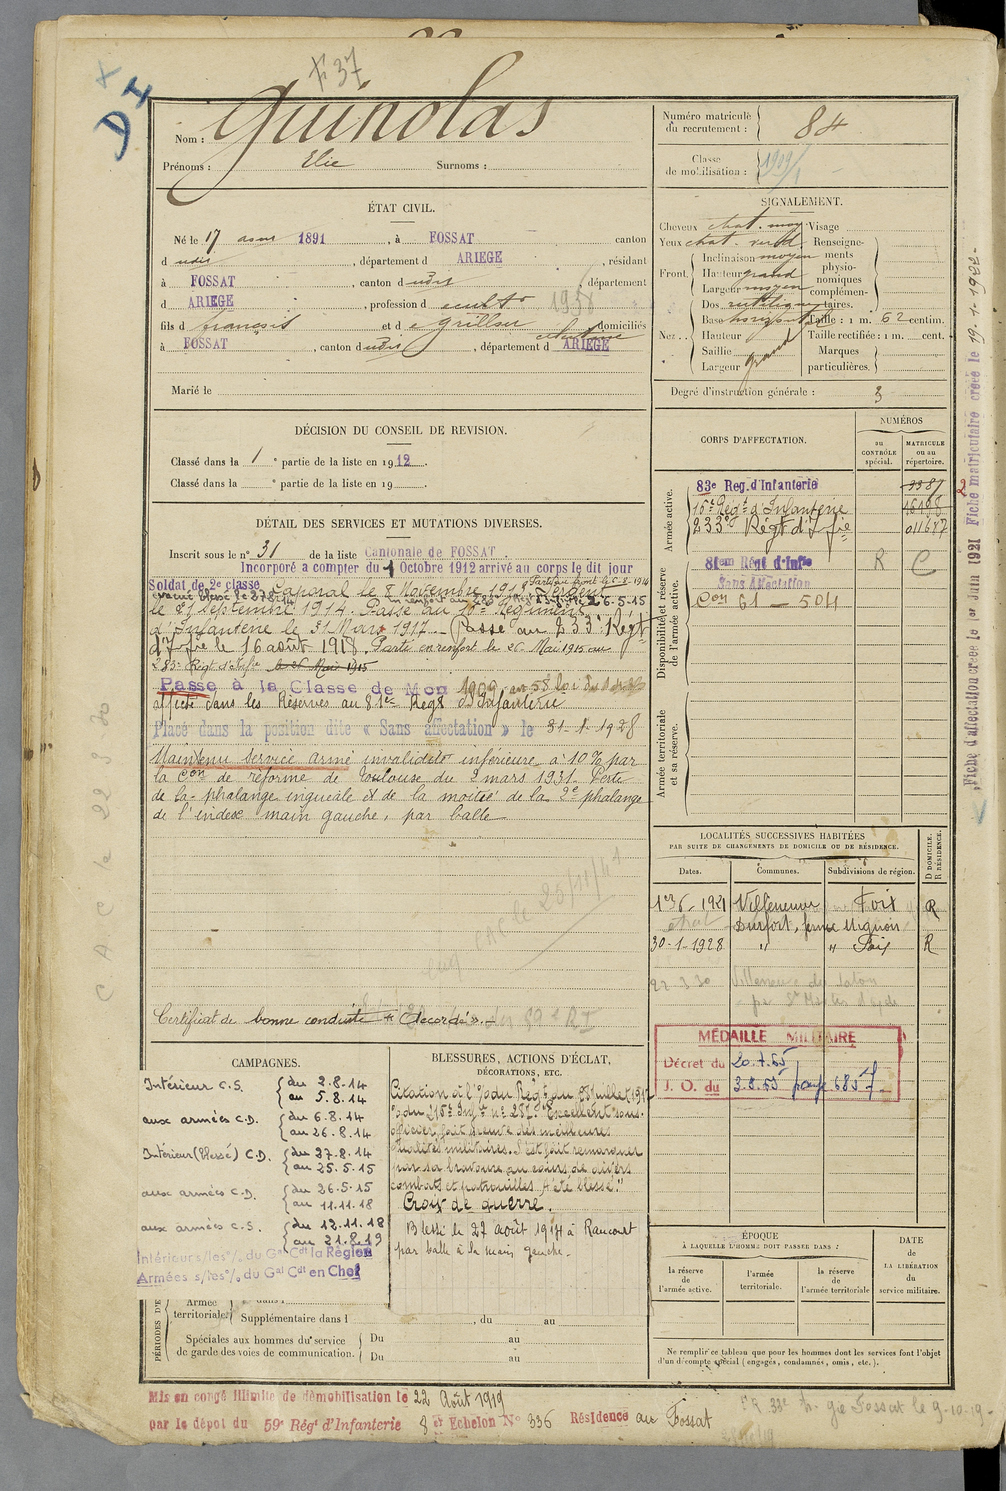 F 37
D 4
Nom : Quinolas
Prénoms : Elie Surnoms :
Numéro matricule du recrutement : 84
Classe de mobilisation : 1909/1
ÉTAT CIVIL.
Né le 17 aout 1891, à FOSSAT canton
d udit, département d ARIEGE, résidant
à FOSSAT, canton d udit, département
d ARIEGE, profession d cult 1958
fils d françois et d e domiciliés
à FOSSAT, canton d udit, département d ARIEGE
Marié le
SIGNALEMENT.
Cheveux chat. moy Visage
Yeux chat. verd. Renseigne-
Front. Inclinaison moyen ments
Hauteur grand physio-
Largeur moyen nomiques
complémen-
Nez... Dos rectiligne taires.
Base horizontal Taille : 1 m. 62 centim.
Hauteur Taille rectifiée : 1 m. cent.
Saillie grand Marques
Largeur particulières.
Degré d'instruction générale : 3
DÉCISION DU CONSEIL DE REVISION.
Classé dans la 1e partie de la liste en 1912.
Classé dans la e partie de la liste en 19 .
DÉTAIL DES SERVICES ET MUTATIONS DIVERSES.
Inscrit sous le n° 31 de la liste Cantonale de FOSSAT.
Incorporé a compter du 1 Octobre 1912 arrivé au corps le dit jour
Soldat de 2e classe Caporal le 8 Novembre 1913 Sergent
evacué blessé le 27.8.14 26-5-15
le 21 septembre 1914. Passé au Régiment
d'Infanterie le 31 Mars 1917. Passé au 233e Regt
d'Infie le 16 aout 1918. Parti en renfort le 26 Mai 1915 au
283e Régt d'Infie le 26 Mai 1915
Passe à la Classe de Mon 1909
affecté dans les Réserves au 81e Regt d'Infanterie
Placé dans la position dite « Sans affectation » le 31-1-1928
Maintenu Service armé invalidité inférieure à 10 % par
la Con de réforme de Toulouse du 2 mars 1931. Perte
de la phalange inguéale et de la moitié de la 2e phalange
de l'index main gauche, par balle
CAC le 25/11/41
CAC le 22 9 30
Certificat de bonne conduite « Accordé ».
CORPS D'AFFECTATION.
NUMÉROS
au CONTRÔLE spécial.
MATRICULE ou au répertoire.
Armée active.
83e Reg. d'Infanterie 3387
15e Régt d'Infanterie
233e Régt d'Infie 011687
Disponibilité et réserve de l'armée active.
81em Régt d'Infie R C
Sans Affectation
Con 61 - 504
Armée territoriale et sa réserve.
Fiche d'affectation créée le 1er Juin 1921 Fiche matriculaire créée le 19-1-1922
LOCALITÉS SUCCESSIVES HABITÉES
PAR SUITE DE CHANGEMENTS DE DOMICILE OU DE RÉSIDENCE.
Dates. Communes. Subdivisions de région.
D DOMICILE.
R RÉSIDENCE.
1er 6-1921 Villeneuve Foix R
Durfort, ferme Mignon
30-1-1928 " " Foix R
22.3.30 Villeneuve du Latou
par St Martin d'oydes
MÉDAILLE MILITAIRE
Décret du 20.7.55
J. O. du 3.8.55 page 6857
CAMPAGNES.
Intérieur C.S. du 2.8.14
au 5.8.14
aux armées C.D. du 6.8.14
au 26.8.14
Intérieur (blessé) C.D. du 27.8.14
au 25.5.15
aux armées C.D. du 26-5-15
au 11.11.18
aux armées C.S. du 12.11.18
au 21.8.19
Intérieurs/les°/. du Gal Cdt la Région
Armées s/les°/. du Gal Cdt en Chef
BLESSURES, ACTIONS D'ÉCLAT,
DÉCORATIONS, ETC.
Citation à l'O du Regt du juillet 1917
"Excellent sous-
officier, fait preuve des meilleures
qualités militaires. S'est fait remarquer
par sa bravoure au cours de divers
combats et patrouilles. A été blessé."
Croix de guerre.
Blessé le 27 août 1914 à Raucourt
par balle à la main gauche.
PÉRIODES D'E
Armée territoriale. dans l
Supplémentaire dans l , du au
Spéciales aux hommes du service Du au
de garde des voies de communication. Du au
ÉPOQUE
À LAQUELLE L'HOMME DOIT PASSER DANS :
la réserve de l'armée active.
l'armée territoriale.
la réserve de l'armée territoriale
DATE de LA LIBÉRATION du service militaire.
Ne remplir ce tableau que pour les hommes dont les services font l'objet
d'un décompte spécial (engagés, condamnés, omis, etc.).
Mis en congé illimité de démobilisation le 22 Août 1919
par le dépot du 59e Régt d'Infanterie 8 er Echelon N° 336 Résidence au Fossat
gie Fossat le 9-10-19-